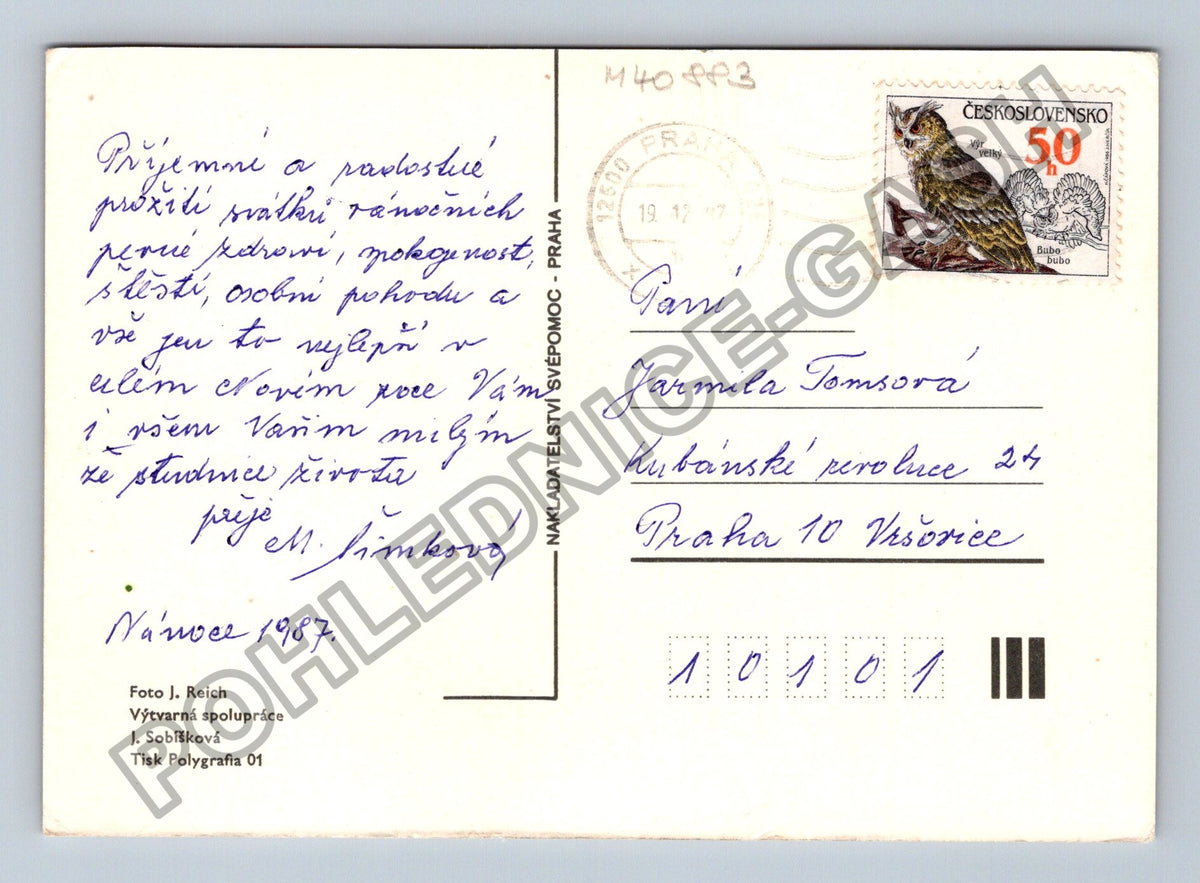 Příjemné a radostné
prožití svátků vánočních
pevné zdraví, spokojenost,
štěstí, osobní pohodu a
vše jen to nejlepší v
celém Novém roce Vám
i všem Vašim milým
ze studnice života
přeje
M. Šimková
Vánoce 1987.
Foto J. Reich
Výtvarná spolupráce
J. Sobíšková
Tisk Polygrafia 01
NAKLADATELSTVÍ SVÉPOMOC - PRAHA
M40883
12600 PRAHA
19. 12.
ČESKOSLOVENSKO
50
h
Výr
velký
Bubo
bubo
Paní
Jarmila Tomsová
Kubánské revoluce 24
Praha 10 Vršovice
10101
POHLEDNICE-GASH